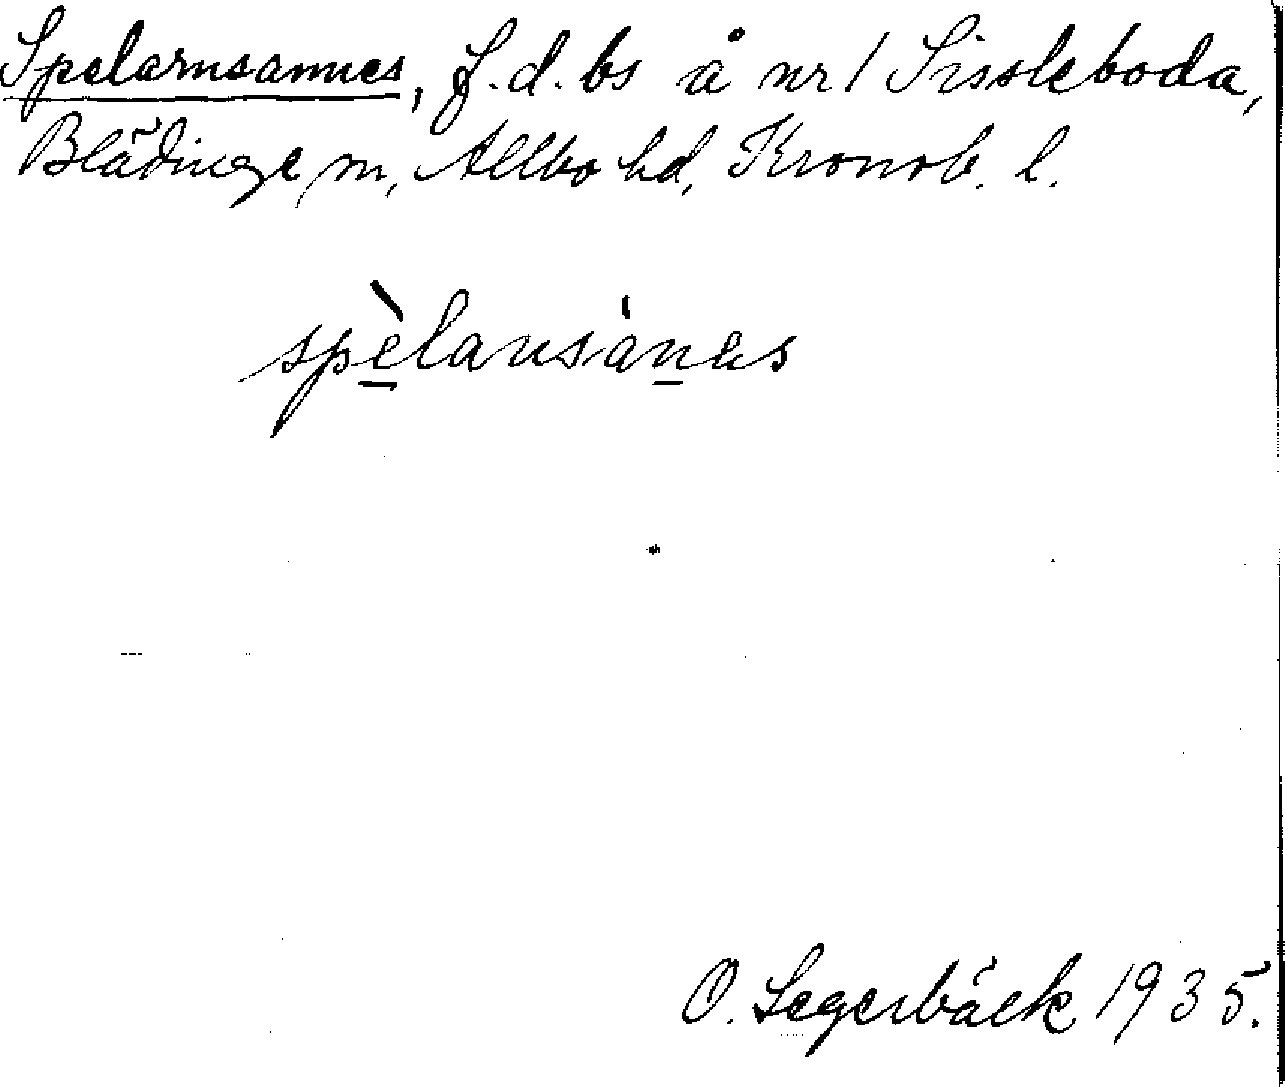 Spelarnsannes, f.d. bs å nr 1 Sissleboda,
Blädinge sn, Allbo hd, Kronob. l.
spèlansánas
O. Segerbäck 1935.